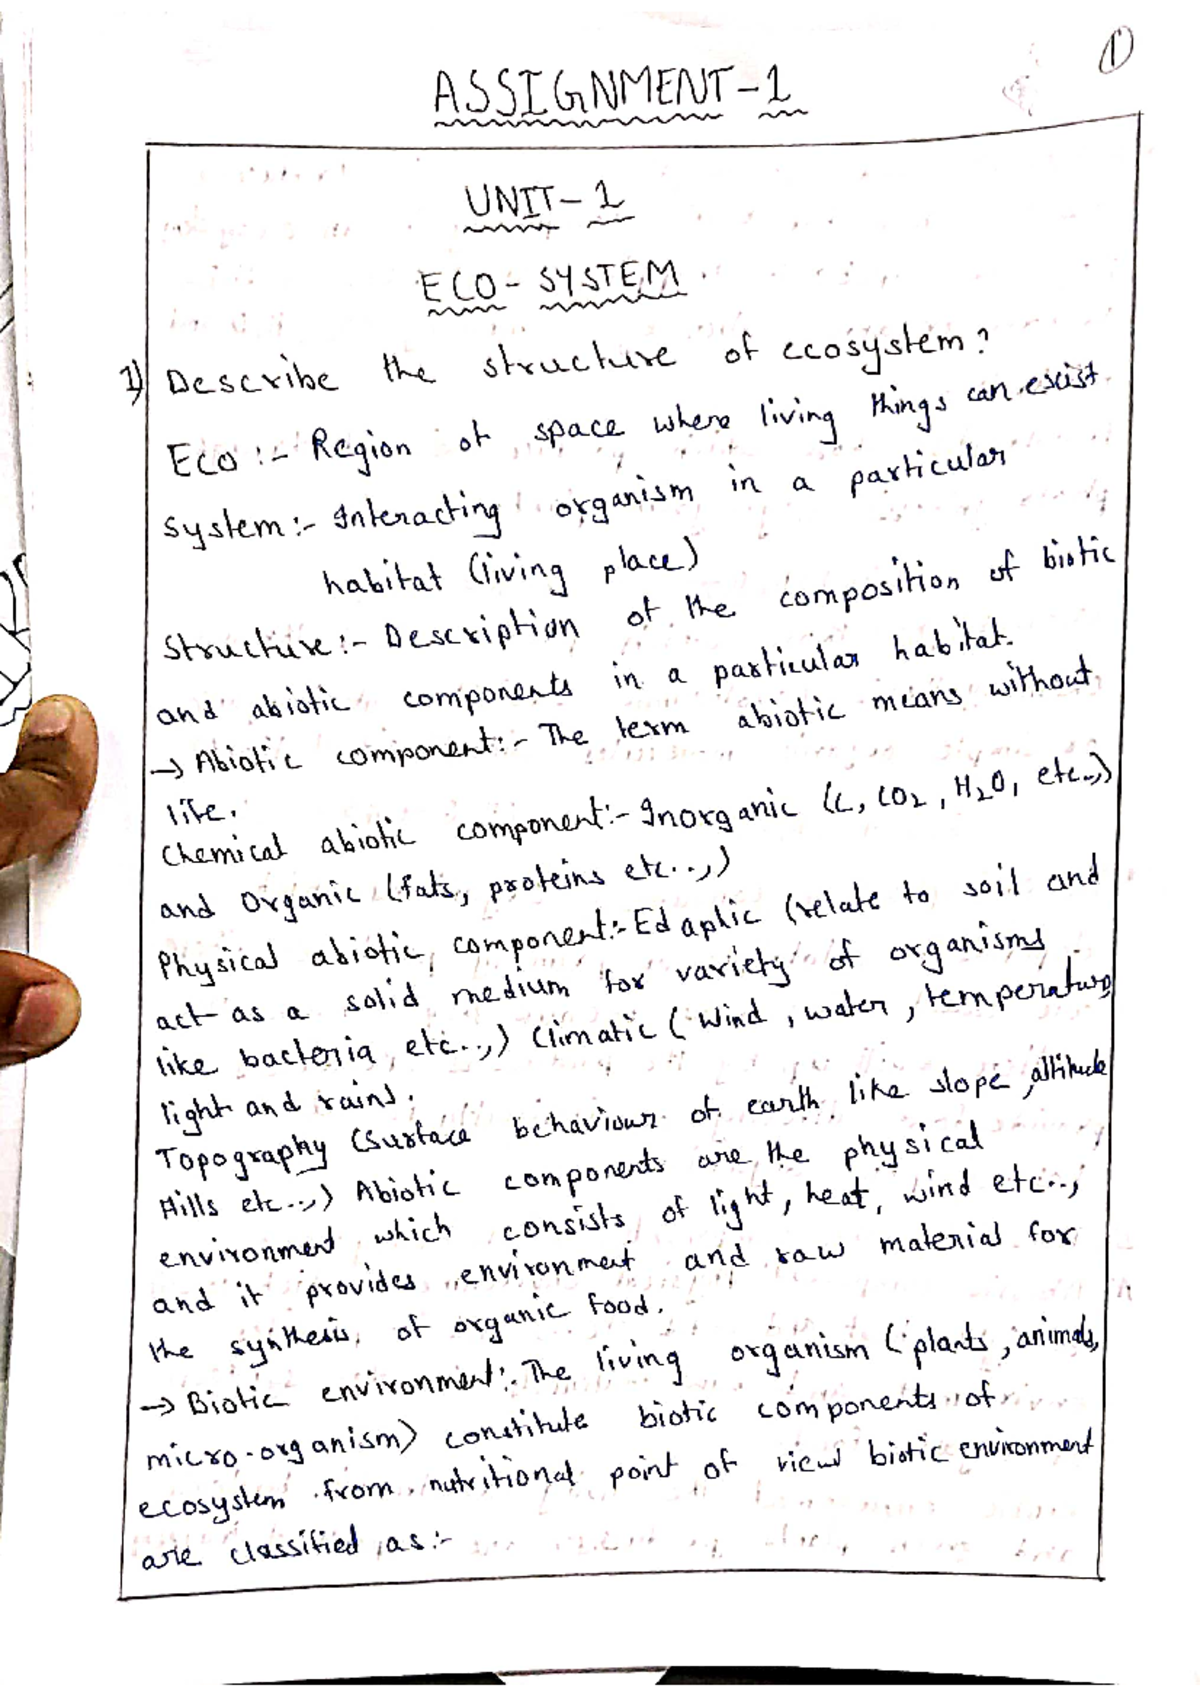 1
ASSIGNMENT-1
UNIT-1
ECO-SYSTEM.
1) Describe the structure of ecosystem?
Eco :- Region of space where living things can exist.
System:- Interacting organism in a particular
habitat (living place)
Structure:- Description of the composition of biotic
and abiotic components in a particular habitat.
→ Abiotic component:- The term abiotic means without
life.
Chemical abiotic component:- Inorganic (C, CO2, H2O, etc..,)
and Organic (fats, proteins etc..,)
Physical abiotic component:- Edaplic (relate to soil and
act as a solid medium for variety of organisms
like bacteria, etc..,) Climatic (Wind, water, temperature
light and rains.
Topography (Surface behaviour of earth like slope, altitude
Hills etc..,) Abiotic components are the physical
environment which consists of light, heat, wind etc..,
and it provides environment and raw material for
the synthesis of organic food.
→ Biotic environment:- The living organism (plants, animals,
micro-organism) constitute biotic components of
ecosystem from nutritional point of view biotic environment
are classified as:-